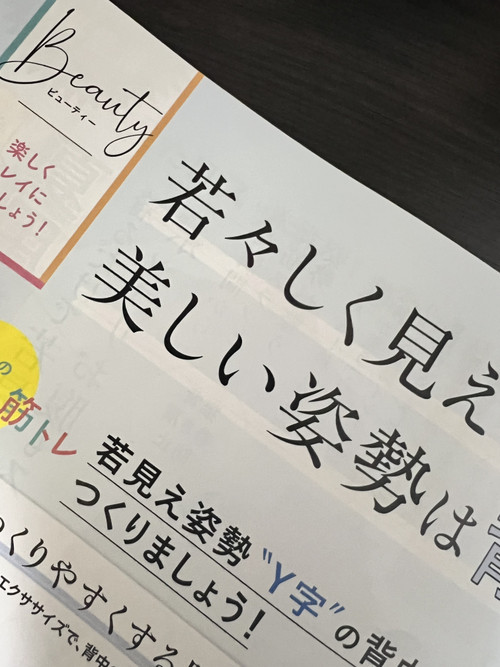 Beauty
ビューティー
楽しく
レイに
しょう！
若々しく見え
美しい姿勢は
の
筋トレ
若見え姿勢“Y字”の背
つくりましょう！
くりやすくする
エクササイズで、背中